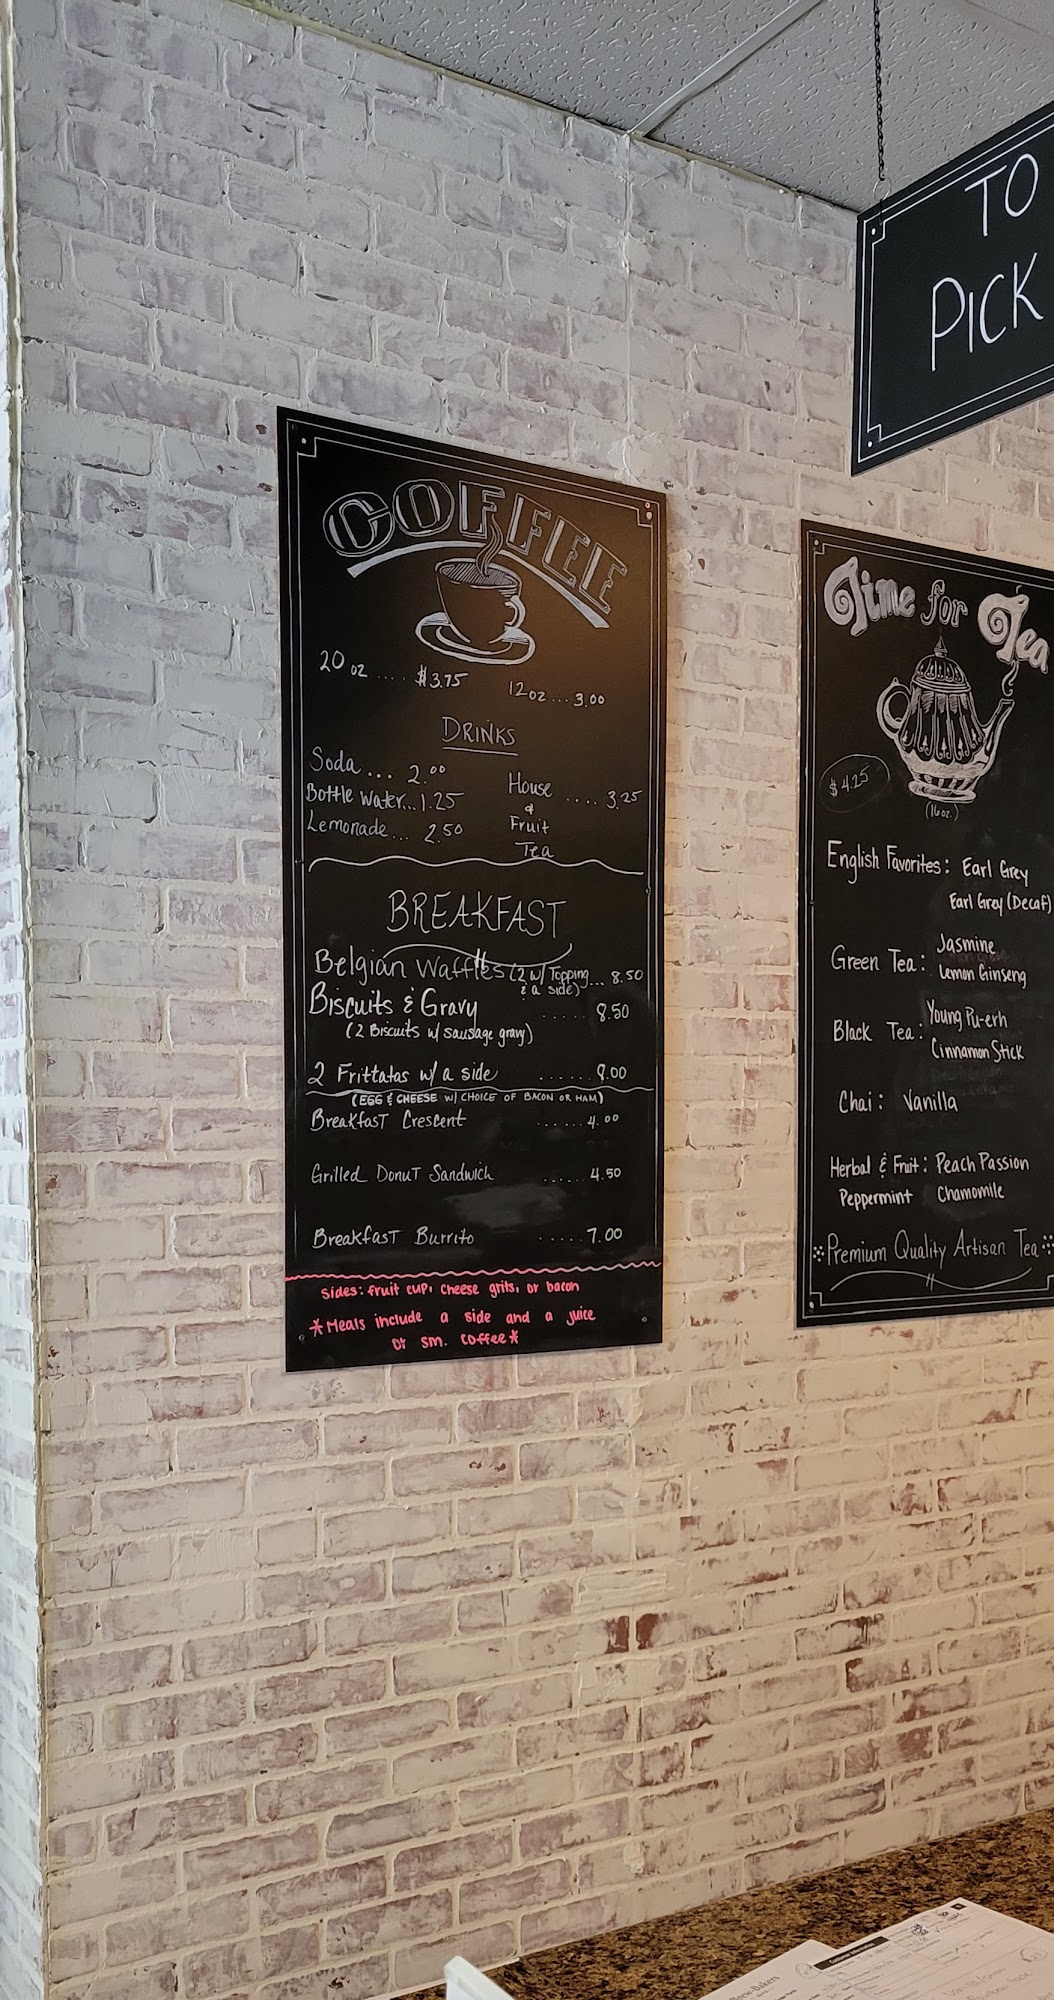 TO
PICK
COFFEE
20 oz .... $3.75
12oz ... 3.00
DRINKS
Soda ... 2.00
Bottle Water... 1.25
Lemonade... 2.50
House .... 3.25
&
Fruit
Tea
BREAKFAST
Belgian Waffles (2 w/ Topping... 8.50
& a side)
Biscuits & Gravy ..... 8.50
(2 Biscuits w/ sausage gravy)
2 Frittatas w/ a side ...... 8.00
(EGG & CHEESE w/ CHOICE OF BACON OR HAM)
Breakfast Crescent ...... 4.00
Grilled Donut Sandwich ..... 4.50
Breakfast Burrito ..... 7.00
sides: fruit cup, cheese grits, or bacon
*Meals include a side and a juice
or sm. coffee*
Time for Tea
$4.25
(16oz.)
English Favorites: Earl Grey
Earl Grey (Decaf)
Green Tea: Jasmine
Lemon Ginseng
Black Tea: Young Pu-erh
Cinnamon Stick
Chai: Vanilla
Herbal & Fruit: Peach Passion
Peppermint Chamomile
Premium Quality Artisan Tea